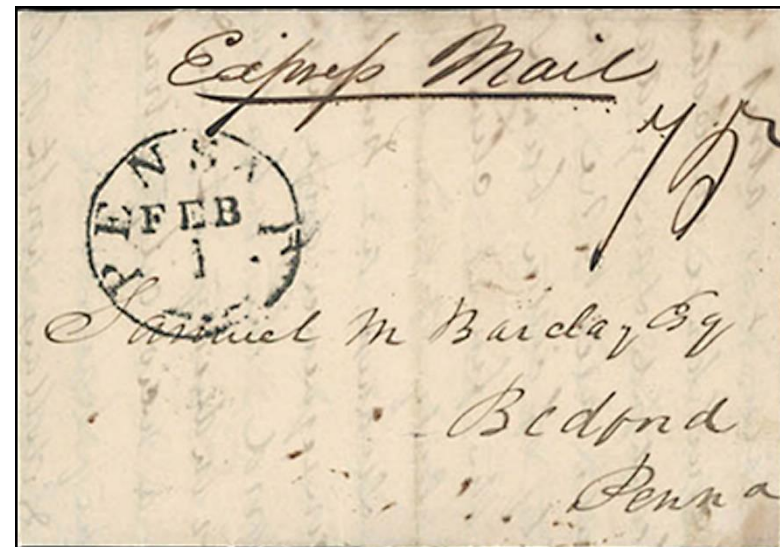 Express Mail
75
PENSA
FEB
1
Samuel M Barclay Esq
Bedford
Penna